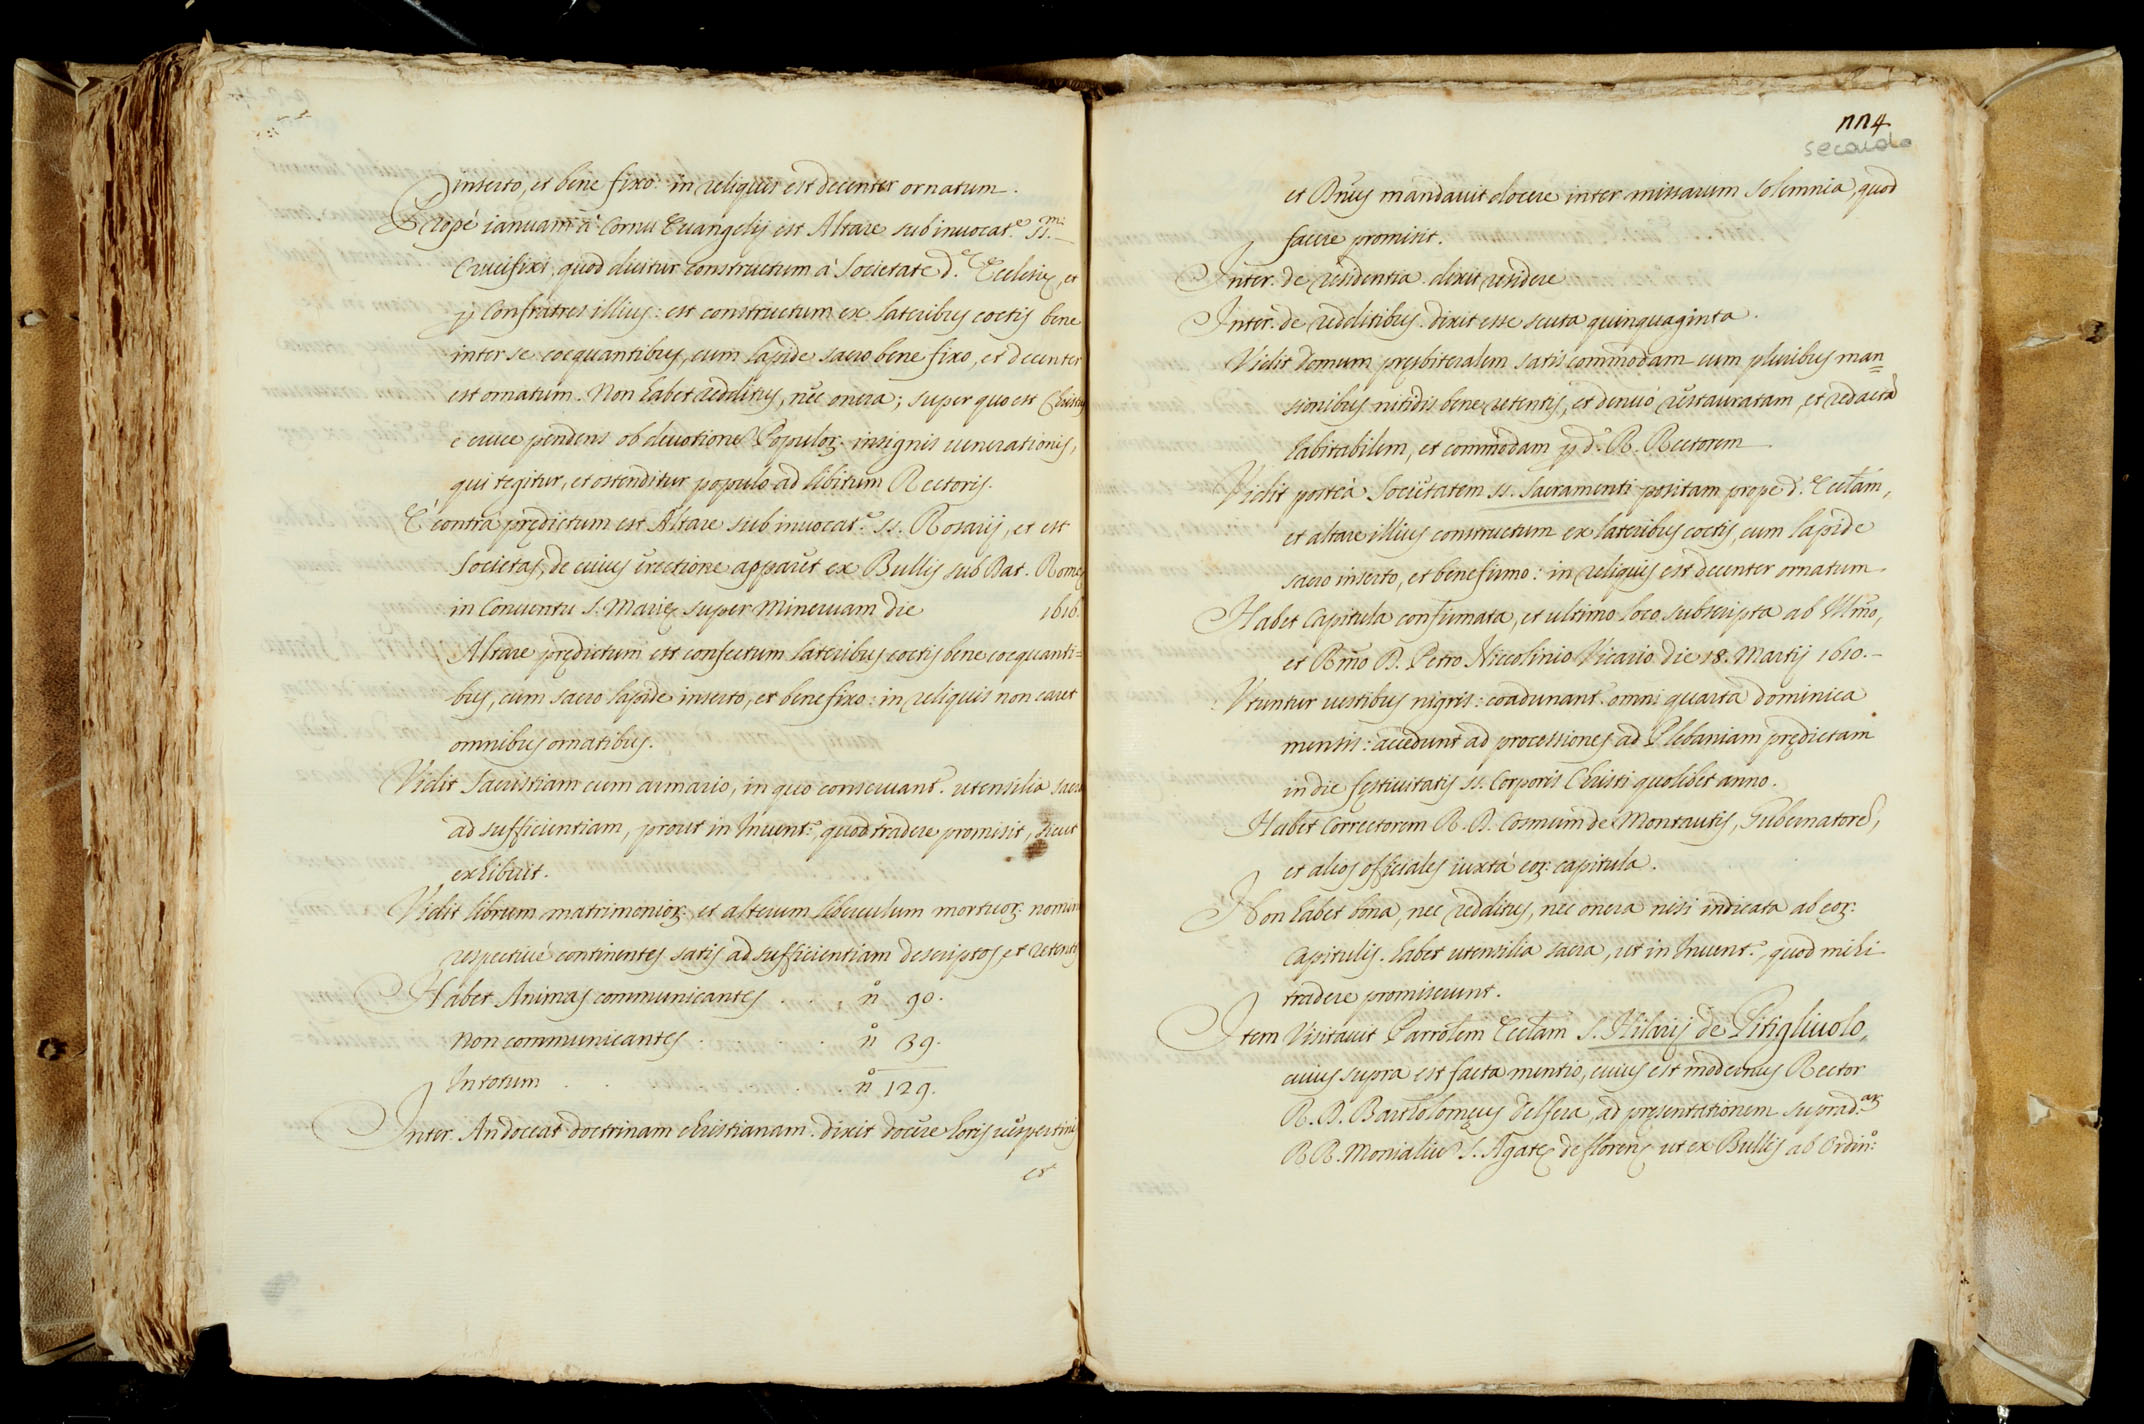 inserto, et bene fixo: in reliquis est decenter ornatum.
Propè ianuam à Cornu Euangelij est Altare sub inuocat.e SS.mi
Crucifixi, quod dicitur constructum à Societate d.e Ecclesię, et
p Confratres illius: est constructum ex lateribus coctis bene
inter se coequantibus, cum lapide sacro bene fixo, et decenter
est ornatum. Non habet redditus, nec onera; super quo est Christus
e cruce pendens ob deuotione Populor: insignis uenerationis,
qui tegitur, et ostenditur populo ad libitum Rectoris.
E contra prędictum est Altare sub inuocat.e SS. Rosarij, et est
Societas, de cuius erectione apparet ex Bullis sub Dat. Romę
in Conuentu S. Marię super Mineruam die 1616.
Altare prędictum est confectum lateribus coctis bene coequanti=
bus, cum sacro lapide inserto, et bene fixo: in reliquis non caret
omnibus ornatibus.
Vidit Sacristiam cum armario, in quo conseruant. utensilia sacra
ad sufficientiam, prout in Inuent.o, quod tradere promisit, sicut
exhibuit.
Vidit librum matrimonior: et alterum libriculum mortuor: nomina
respectiuè continentes satis ad sufficientiam descriptos, et retentos
Habet Animas communicantes . . . no 90.
Non communicantes . . . no 39.
In totum . . . no 129.
Inter. An doceat doctrinam christianam. dixit docere horis uespertinis
et
114
secondo
et Dnus mandauit docere inter missarum solemnia, quod
facere promisit.
Inter. de residentia. dixit residere
Inter. de redditibus. dixit esse scuta quinquaginta.
Vidit domum pręsbiteralem satis commodam cum pluribus man=
sionibus nitidis bene retentis, et denuò restauratam, et redactà
habitabilem, et commodam p d.o R. Rectorem
Vidit posteà Societatem SS. Sacramenti positam prope d. Ecclam,
et altare illius constructum ex lateribus coctis, cum lapide
sacro inserto, et bene firmo: in reliquis est decenter ornatum
Habet Capitula confirmata, et ultimo loco subscripta ab Illmo,
et Rmo D. Petro Niccolinio Vicario die 18. Martij 1610.-
Vtuntur uestibus nigris: coadunant. omni quarta dominica
mensis: accedunt ad processiones ad Plebaniam prędictam
in die festiuitatis SS. Corporis Christi quolibet anno.
Habet Correctorem R. D. Cosmum de Montautis, Gubernatore,
et alios officiales iuxtà eor: capitula.
Non habet bona, nec redditus, nec onera nisi indicata ab eor:
Capitulis. habet utensilia sacra, ut in Inuent.o, quod mihi
tradere promiserunt.
Item Visitauit Parrolem Ecclam S. Hilarij de Pitigliuolo,
cuius supra est facta mentio, cuius est modernus Rector
R. D. Bartolomęus Delfera, ad pręsentationem suprad.ar
R R. Monialiu S. Agatę de florenę ut ex Bullis ab Ordin.o: